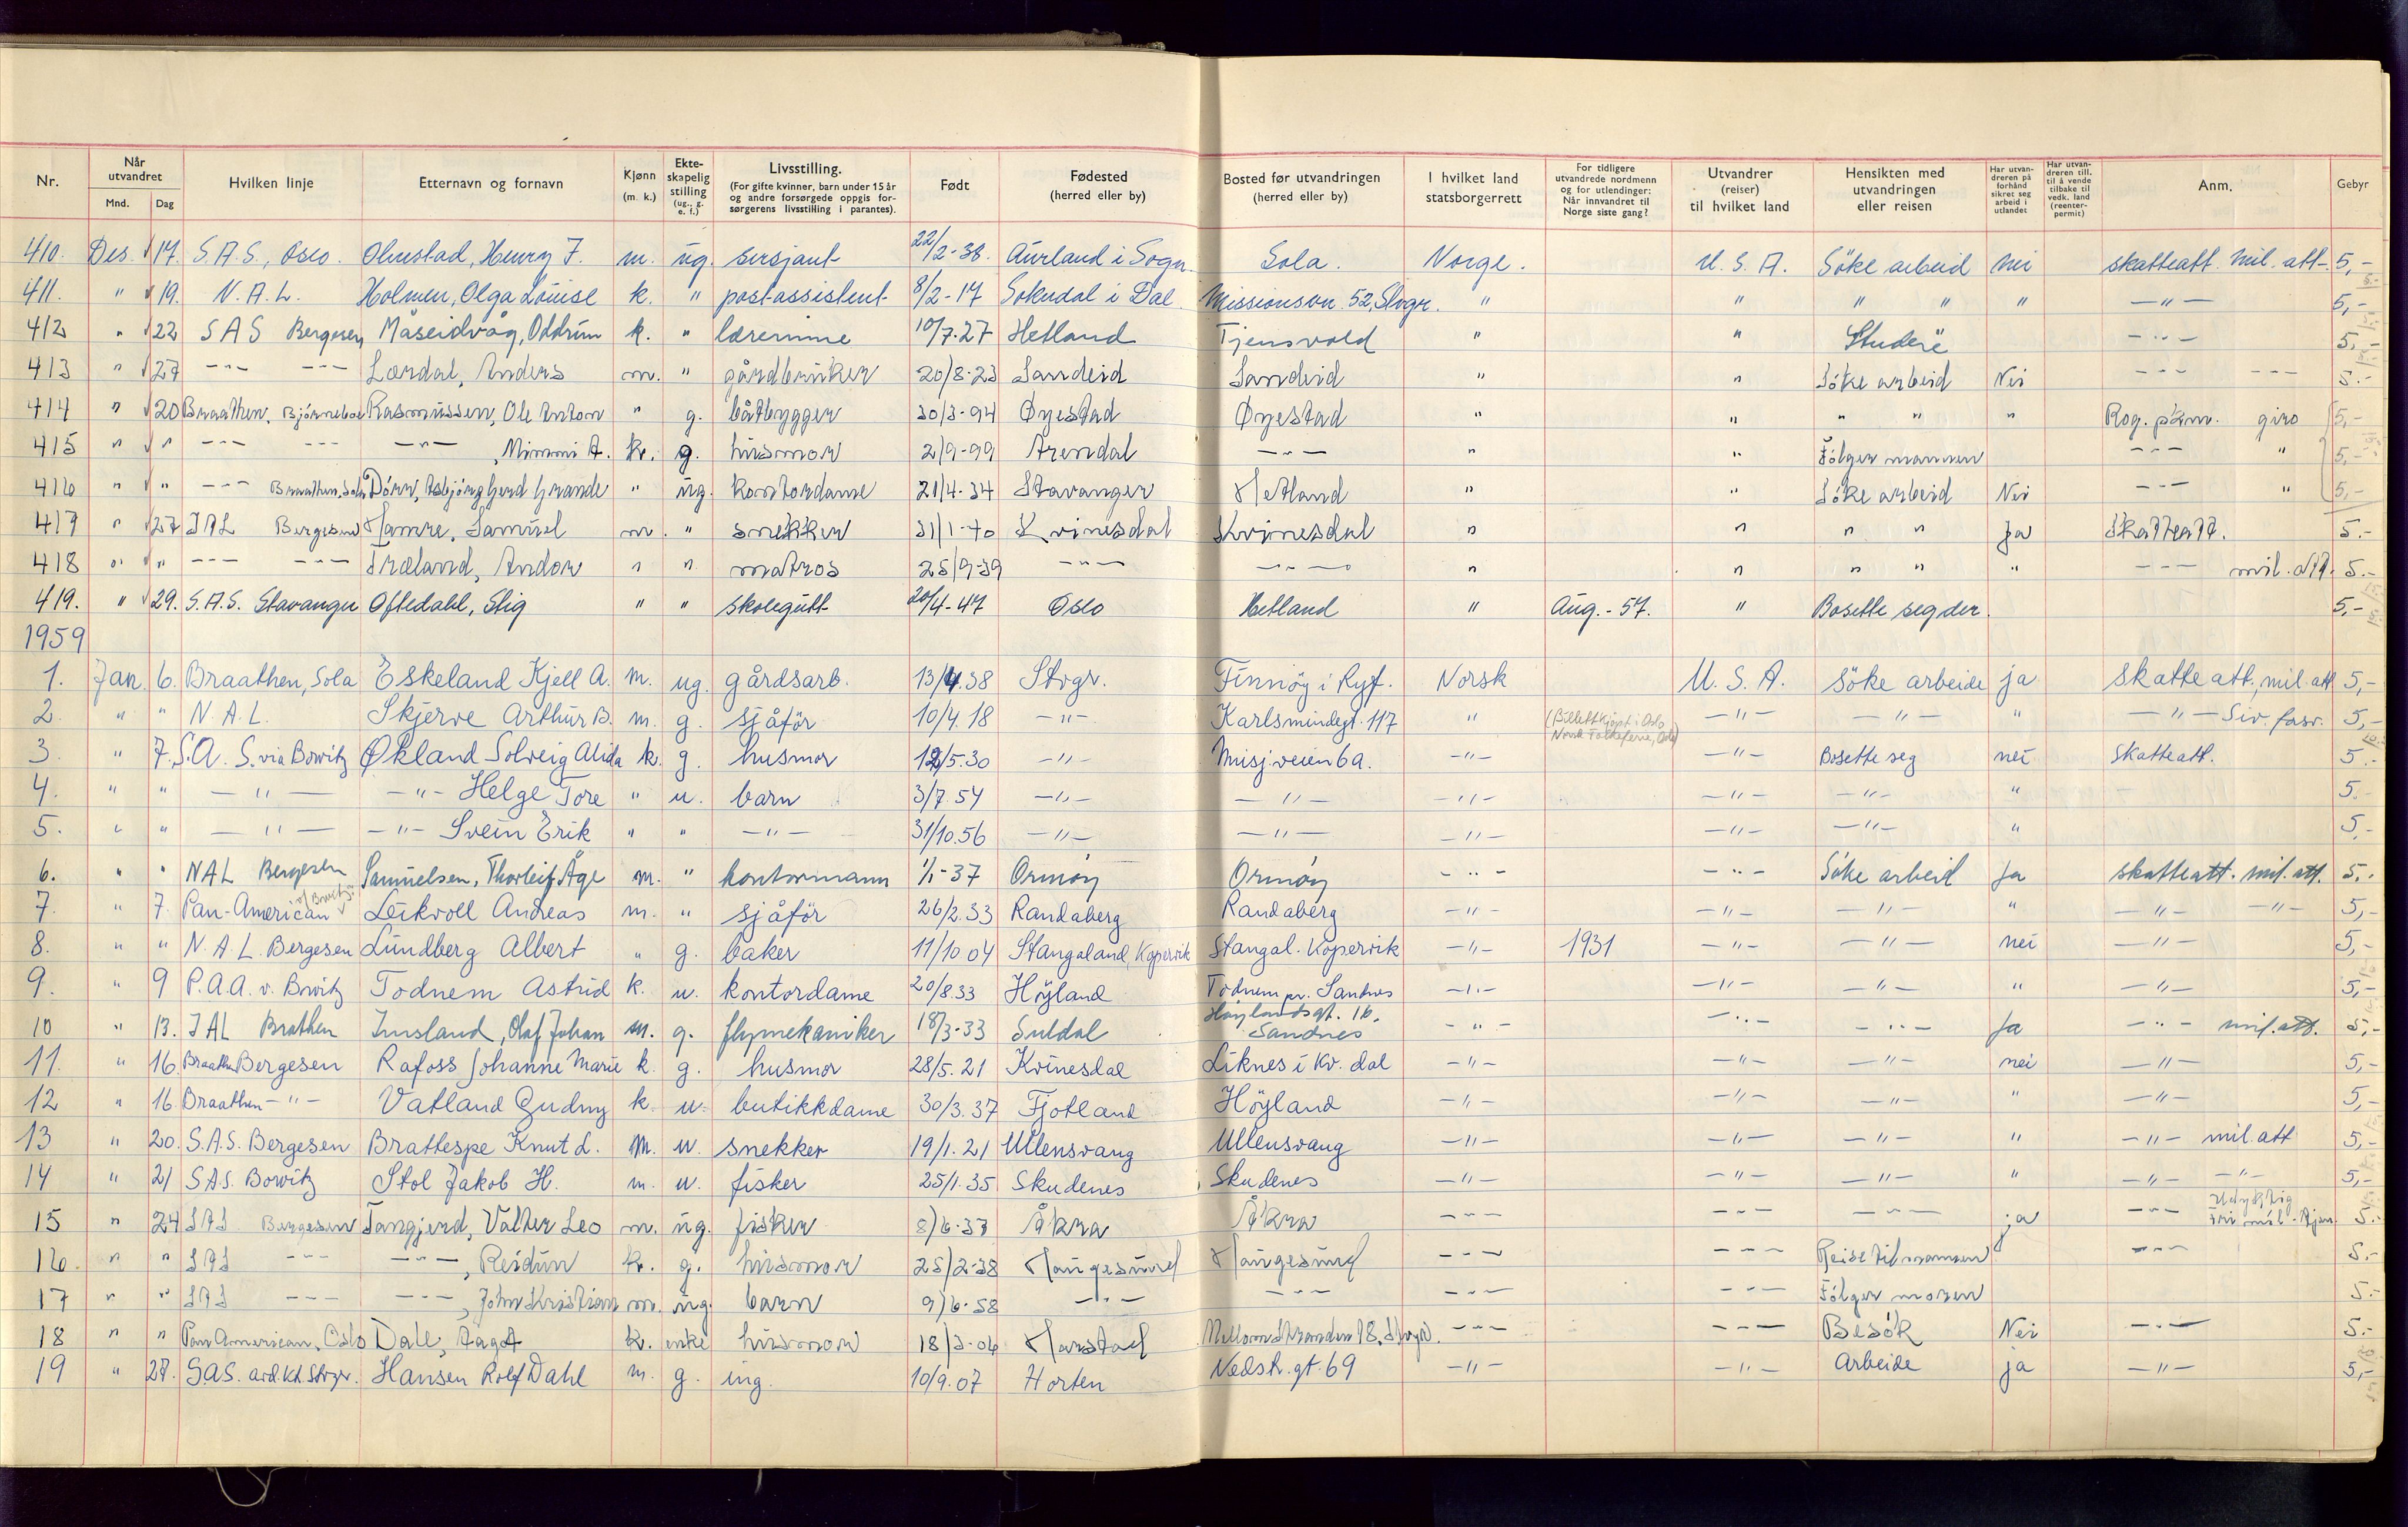 Nr. Når utvandret Mnd. Dag Hvilken linje Etternavn og fornavn Kjønn (m. k.) Ekteskapelig stilling (ug., g. e. f.) Livsstilling. (For gifte kvinner, barn under 15 år og andre forsørgede oppgis forsørgerens livsstilling i parantes). Født Fødested (herred eller by) Bosted før utvandringen (herred eller by) I hvilket land statsborgerrett For tidligere utvandrede nordmenn og for utlendinger: Når innvandret til Norge siste gang? Utvandrer (reiser) til hvilket land Hensikten med utvandringen eller reisen Har utvandreren på forhånd sikret seg arbeid i utlandet Har utvandreren till. til å vende tilbake til vedk. land (reenterpermit) Anm. Gebyr
410. Des. 17. S.A.S., Oslo. Olnestad, Henry J. m. ug. sersjant 22/2-38. Aurland i Sogn. Sola. Norge. U.S.A. Söke arbeid nei skatteatt. mil. att. 5,-
411. " 19. N.A.L. Holmen, Olga Louise k. " post-assistent 8/2-17 Sokndal i Dal. Missionsvn. 52, Stvgr. " " " " " -"- 5,-
412 " 22 SAS Bergesen Måseidvåg, Oddrun k. " lærerinne 10/7.27 Hetland Tjensvold " " Studere -"- 5,-
413 " 27 -"- -"- Lærdal, Anders m. " gårdbruker 20/8-23 Sandeid Sandeid " " Söke arbeid Nei -"- -"- 5.-
414 " 20 Braathen, Bjørneboe Rasmussen, Ole Anton " g. båtbygger 30/3-94 Øyestad Øyestad " " " " " Rog. p.km. giro 5,-
415 " " -"- -"- -"- , Mimmi A. k. g. husmor 2/9-99 Arendal -"- " " Fölger mannen -"- " 5,-
416 " " -"- Braathen, Sola Dörr, Asbjörg Gerd Grande " ug. kontordame 21/4-34 Stavanger Hetland " " Söke arbeid Nei -"- " 5,-
417 " 27 IAL Bergesen Hamre, Samuel m. " snekker 31/1-70 Kvinesdal Kvinesdal " " " " Ja Skatteatt. 5.-
418 " " -"- -"- Træland, Andor " " matros 25/9-39 -"- -"- " " " " " -"- mil. att. 5.-
419. " 29. S.A.S. Stavanger Oftedahl, Stig " " skolegutt 20/4-47 Oslo Hetland " Aug.-57. " Bosette seg der. 5,-
1959
1. Jan. 6. Braathen, Sola Eskeland Kjell A. m. ug. gårdsarb. 13/4.38 Stvgr. Finnöy i Ryf. Norsk U.S.A. Söke arbeide ja skatteatt., mil. att 5,-
2. " " N.A.L. Skjerve Arthur B. m. g. sjåför 10/4.18 -"- Karlsmindegt. 117 " (Billett kjøpt i Oslo Norsk Folkeferie, Oslo) -"- -"- " -"- Siv. fosv. 5,-
3. " 7. S.A.S. via Bowitz Økland Solveig Alida k. g. husmor 12/5.30 -"- Misj.veien 6a. -"- -"- Bosette seg nei Skatteatt. 5.-
4. " " -"- -"- Helge Tore " u. barn 3/7.54 -"- -"- -"- -"- -"- " 5.-
5. " " -"- -"- Svein Erik " " -"- 31/10.56 -"- -"- -"- -"- -"- " 5.-
6. " " NAL Bergesen Samuelsen, Thorleif Åge m. " kontormann 1/1-37 Ormöy Ormöy -"- -"- Söke arbeid Ja skatteatt. mil. att. 5.-
7. " 7. Pan-American v/Bowitz Leikvoll Andreas m. " sjåför 26/2.33 Randaberg Randaberg -"- -"- -"- " -"- -"- 5,-
8. " " N.A.L. Bergesen Lundberg Albert " g. baker 11/10 04 Stangaland, Kopervik Stangal. Kopervik -"- 1931 -"- -"- nei -"- 5,-
9. " 9 P.A.A. v. Bowitz Todnem Astrid k. u. kontordame 20/8.33 Höyland Todnem pr. Sandnes -"- -"- -"- " -"- 5,-
10 " 13. IAL Brathen Imsland, Olaf Johan m. g. flymekaniker 18/3-33 Suldal Höylandsgt. 16. Sandnes -"- -"- -"- Ja -"- mil. att. 5,-
11. " 16. Braathen Bergesen Rafoss Johanne Marie k. g. husmor 28/5.21 Kvinesdal Liknes i Kv. dal -"- -"- -"- nei -"- 5,-
12 " 16. Braathen -"- Vatland Gudny k. u. butikkdame 30/3.37 Fjotland Höyland -"- -"- -"- " -"- 5,-
13 " 20. S.A.S. Bergesen Brattespe Knut L. m. u. snekker 19/1.21 Ullensvang Ullensvang -"- -"- -"- " -"- mil. att 5,-
14 " 21 S.A.S. Bowitz Stol Jakob H. m. u. fisker 25/1.35 Skudenes Skudenes -"- -"- -"- " -"- -"- 5,-
15 " 24 SAS Bergesen Tangjerd, Valter Leo m. ug. fisker 8/6-37 Åkra Åkra -"- -"- -"- ja -"- Udyktig for mil. tjen. 5.-
16. " " SAS -"- -"- , Reidun k. g. husmor 25/2-38 Haugesund Haugesund -"- -"- Reise til mannen -"- 5.-
17 " " SAS -"- -"- , John Kristian m. ug. barn 9/6-58 -"- -"- -"- -"- Fölger moren 5.-
18 " " Pan American, Oslo Dale, Aagot k. enke husmor 18/3-04 Harstad Mellomstranden 18, Stvgr. -"- -"- Besök Nei -"- 5.-
19 " 28. S.A.S. avd.kt. Stvgr. Hansen Rolf Dahl m. g. ing. 10/9.07 Horten Nedstr. gt. 69 -"- -"- Arbeide ja -"- 5,-